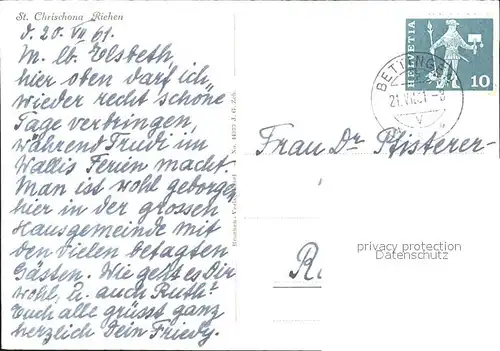 St. Chrischona Riehen
d. 20. VII 61.
M. lb. Elsbeth,
hier oben darf ich
wieder recht schöne
Tage verbringen,
während Trudi im
Wallis Ferien macht.
Man ist wohl geborgen
hier in der grossen
Hausgemeinde mit
den vielen betagten
Gästen. Wie geht es Dir
wohl, u. auch Ruth?
Euch alle grüsst ganz
herzlich Dein Friedy.
HELVETIA
10
BETTINGEN
21. VII. 61
Frau Dr Pfisterer-
privacy protection
Datenschutz